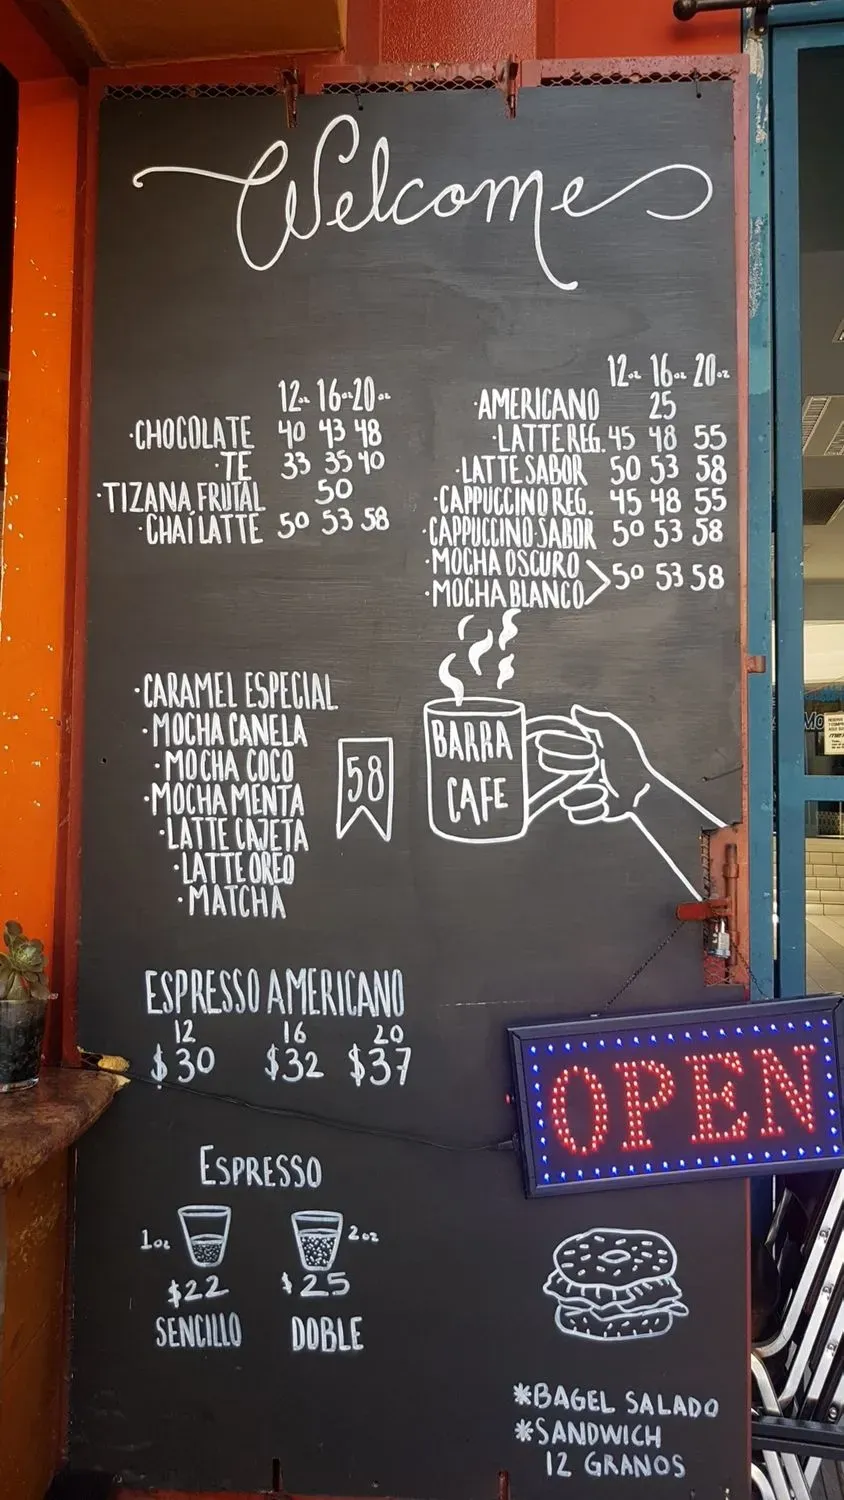 Welcome
12oz 16oz 20oz
·CHOCOLATE 40 43 48
·TE 33 35 40
·TIZANA FRUTAL 50
·CHAÍ LATTE 50 53 58
12oz 16oz 20oz
·AMERICANO 25
·LATTE REG. 45 48 55
·LATTE SABOR 50 53 58
·CAPPUCCINO REG. 45 48 55
·CAPPUCCINO SABOR 50 53 58
·MOCHA OSCURO
·MOCHA BLANCO 50 53 58
·CARAMEL ESPECIAL
·MOCHA CANELA
·MOCHA COCO
·MOCHA MENTA
·LATTE CAJETA
·LATTE OREO
·MATCHA
58
BARRA
CAFE
ESPRESSO AMERICANO
12 16 20
$30 $32 $37
OPEN
ESPRESSO
1oz 2oz
$22 $25
SENCILLO DOBLE
*BAGEL SALADO
*SANDWICH
12 GRANOS